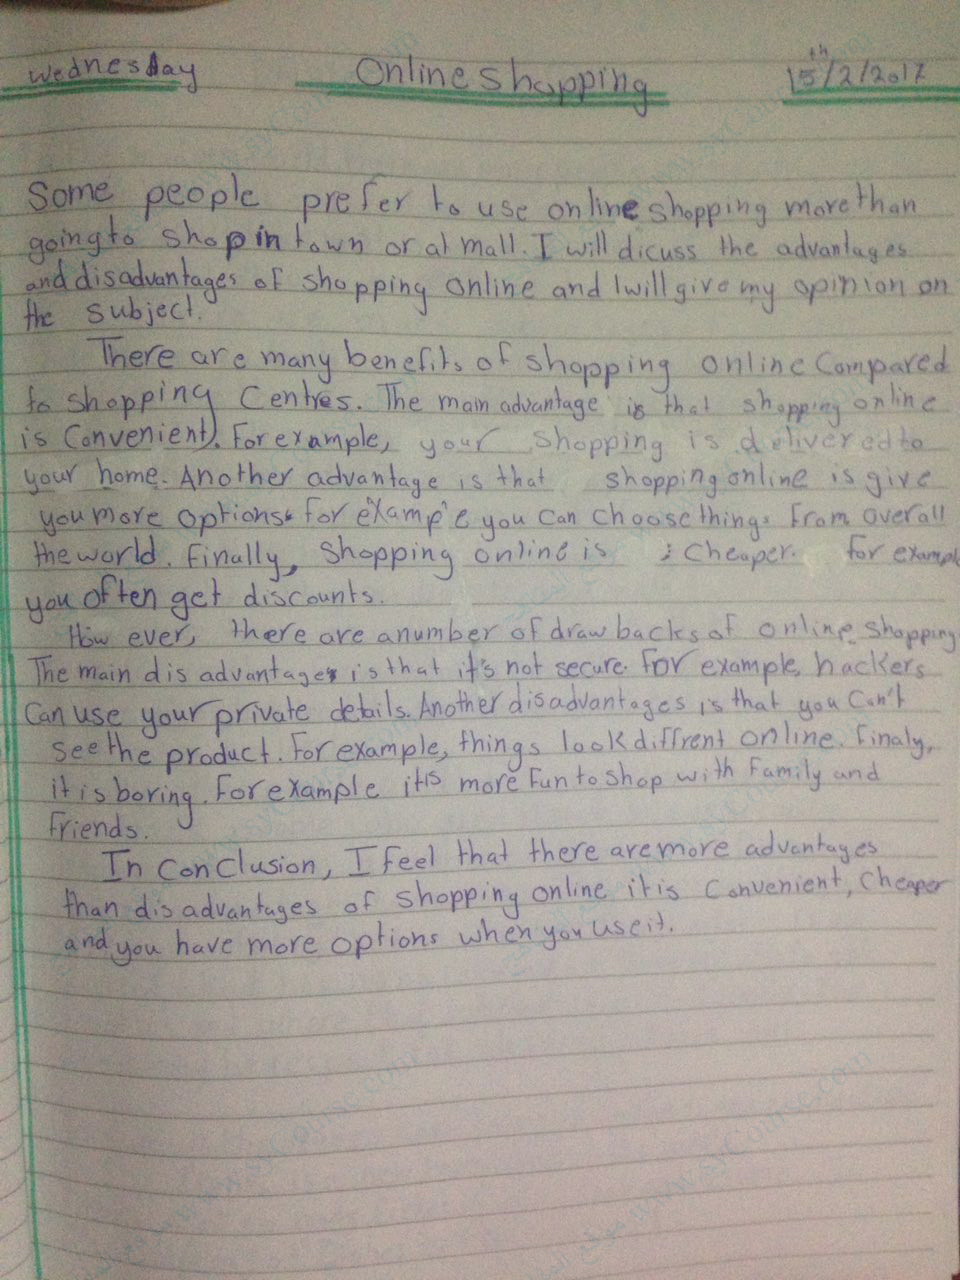 Wednesday Online shopping 15th/2/2017
Some people prefer to use online shopping more than
going to shop in town or at mall. I will dicuss the advantages
and disadvantages of shopping online and I will give my opinion on
the subject.
There are many benefits of shopping online Compared
to shopping Centres. The main advantage is that shopping online
is Convenient. For example, your shopping is delivered to
your home. Another advantage is that shopping online is give
you more options. for example you can choose things from overall
the world. Finally, Shopping online is cheaper. for example
you often get discounts.
How ever, there are a number of draw backs of online shopping
The main dis advantages is that it's not secure. For example, hackers
Can use your private details. Another disadvantages is that you Can't
see the product. For example, things look diffrent online. Finaly,
it is boring. For example it is more fun to shop with family and
friends.
In Conclusion, I feel that there are more advantages
than dis advantages of shopping online it is Convenient, Cheaper
and you have more options when you use it.